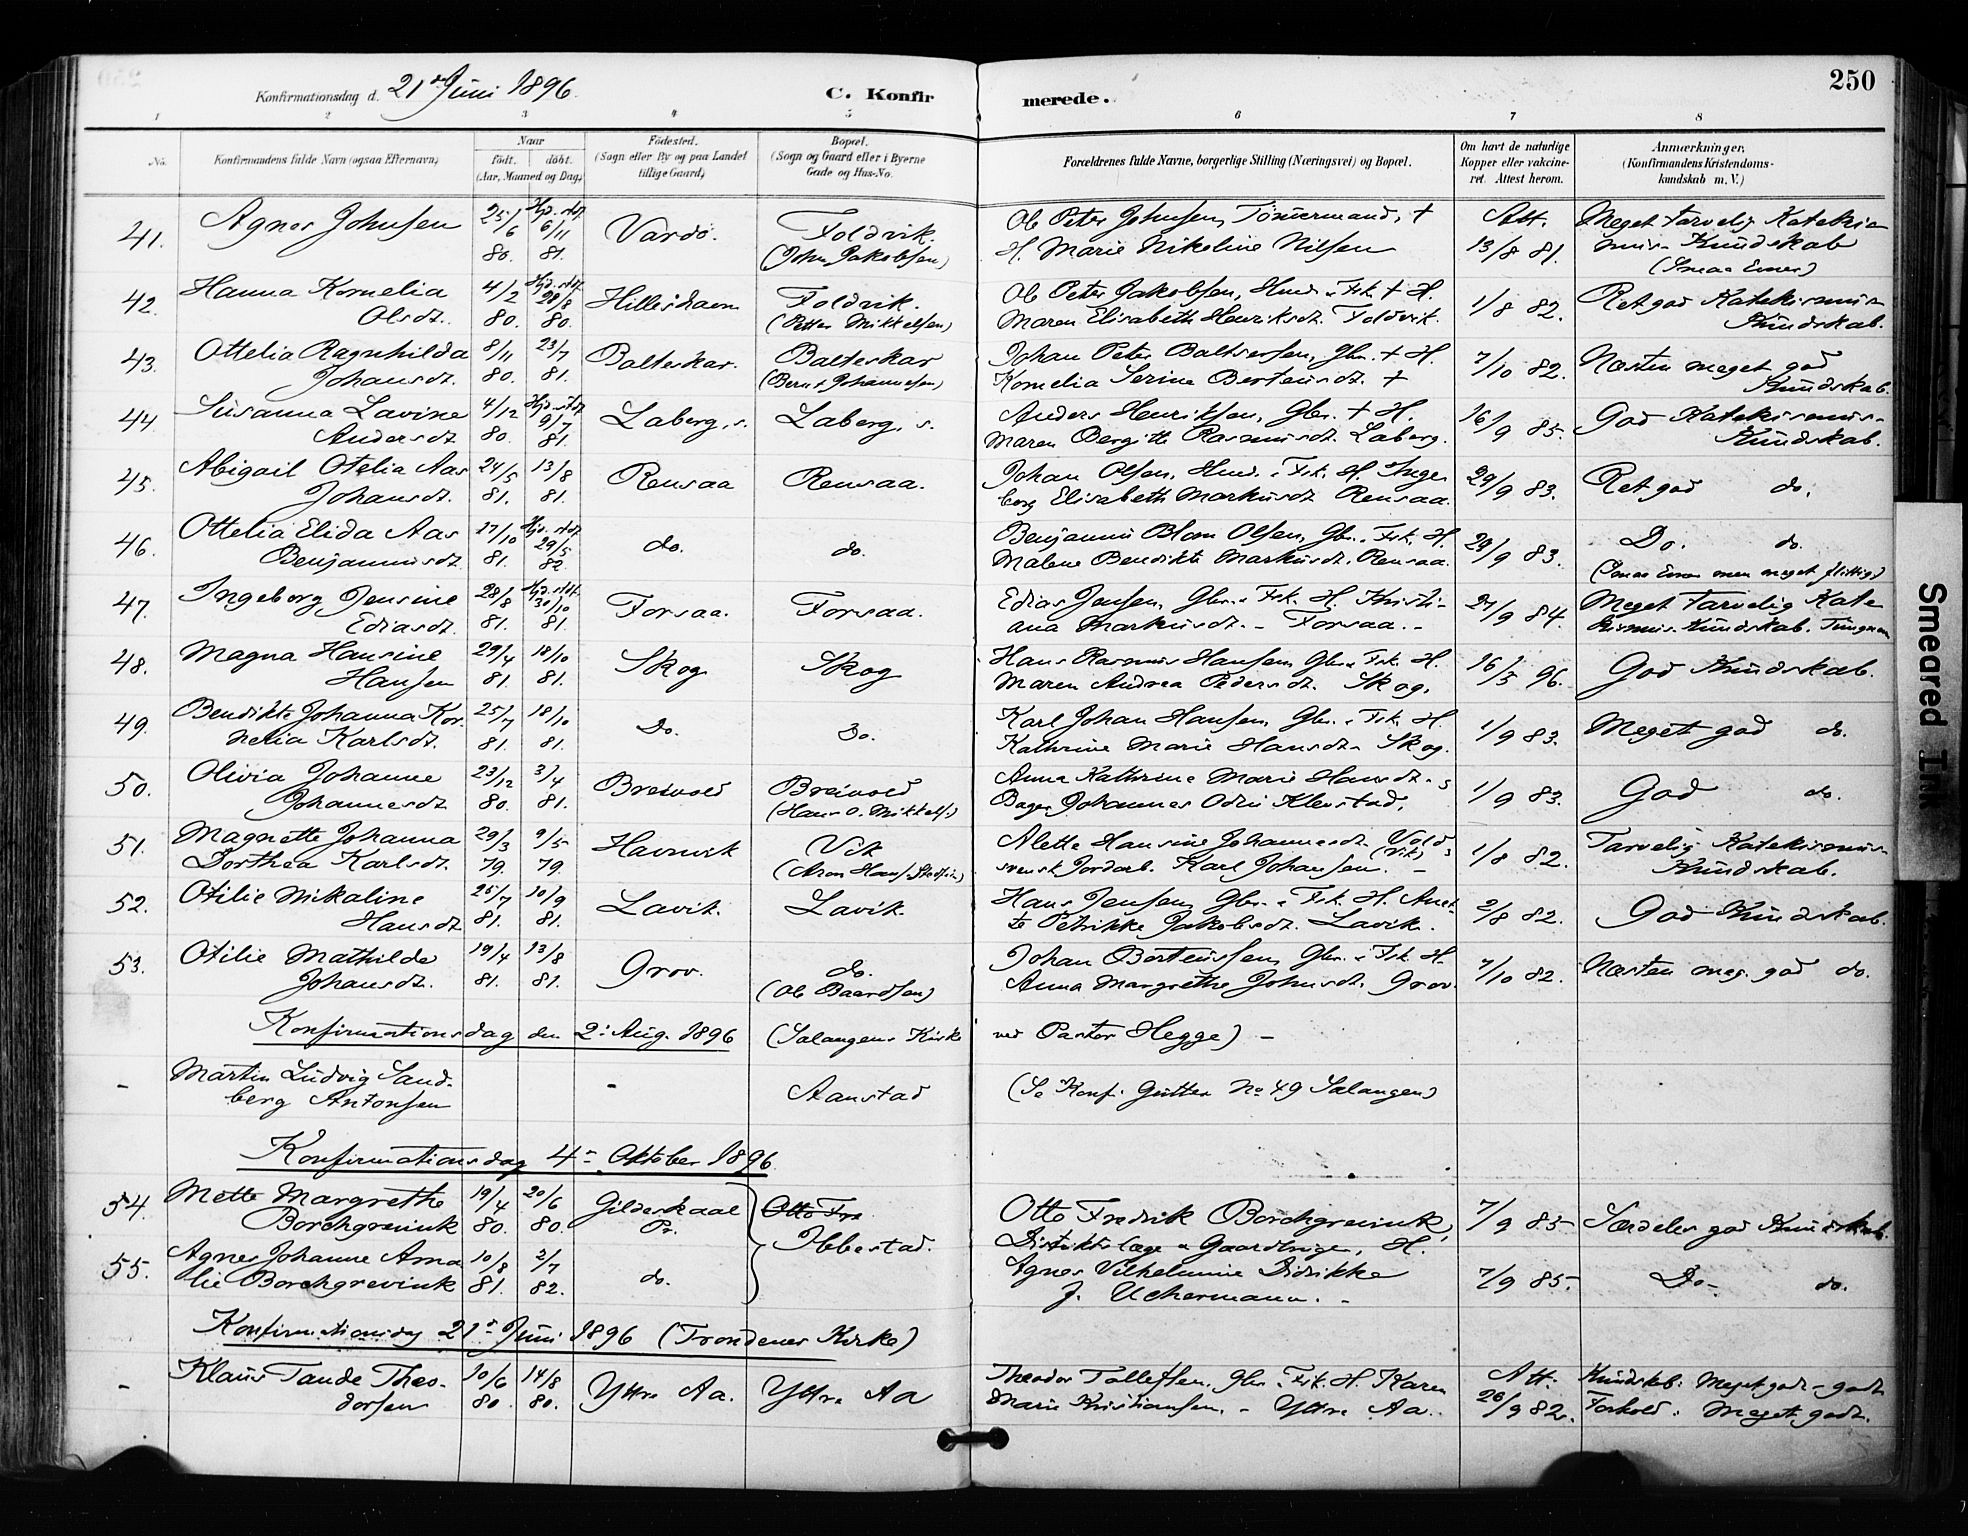 250
Konfirmationsdag d. 21de Juni 1896.
C. Konfirmerede.
1 2 3 4 5 6 7 8
No.
Konfirmandens fulde Navn (ogsaa Efternavn)
Naar
födt. döbt.
(Aar, Maaned og Dag)
Födested.
(Sogn eller By og paa Landet
tillige Gaard)
Bopæl.
(Sogn og Gaard eller i Byerne
Gade og Hus-No.
Forældrenes fulde Navne, borgerlige Stilling (Næringsvei) og Bopæl.
Om havt de naturlige
Kopper eller vakcine-
ret. Attest herom.
Anmærkninger,
(Konfirmandens Kristendoms-
kundskab m. V.)
41. Agnes Johnsen 25/6 80. Hjd. døbt. 6/11 81. Vardø. Foldvik. (John Jakobsen)
Ole Peter Johnsen, Tömmermand, +
H. Marie Nikoline Nilsen
Att. 13/8 81.
Meget tarvelig Katekis-
mus-Kundskab
(Smaa Evner)
42. Hanna Kornelia
Olsdt. 4/2 80. Hjd. døbt. 28/8 80. Hilleshavn Foldvik. (Petter Mikkelsen)
Ole Peter Jakobsen, Husm. & Fsk. + H.
Maren Elisabeth Henriksdt. Foldvik.
1/8 82.
Ret god Katekismus-
Kundskab.
43. Ottelia Ragnhilda
Johansdt. 8/11 80. 23/7 81. Balteskar. Balteskar (Bernt Johannesen)
Johan Peter Baltsersen, Gbr. + H.
Kornelia Serine Berteusdt. +
7/10 82.
Næsten meget god
Kundskab.
44. Susanna Lavine
Andersdt. 4/12 80. Hjd. døbt. 9/7 81. Laberg, s. Laberg, s.
Anders Henriksen, Gbr. + H.
Maren Bergitte Rasmusdt. Laberg.
16/9 85.
God Katekismus-
Kundskab.
45. Abigail Otelia Aas
Johansdt. 24/5 81. 13/8 81. Rensaa Rensaa.
Johan Olsen, Husm. & Fsk. H. Inge
borg Elisabeth Markusdt. Rensaa.
29/9 83.
Ret god do.
46. Ottelia Elida Aas
Benjaminsdt. 17/10 81. Hjd. døbt. 29/5 82 do. do.
Benjamin Blom Olsen, Gbr. & Fsk. H.
Malene Bendikte Markusdt. Rensaa.
29/9 83.
Do. do.
(Smaa Evner men meget flittig)
47. Ingeborg Jensine
Ediasdt. 28/8 81. Hjd. døbt. 30/10 81. Forsaa. Forsaa.
Edias Jensen, Gbr. & Fsk. H. Kristi-
ana Markusdt. - Forsaa. -
27/9 84.
Meget tarvelig Kate
kismus-Kundskab.
48. Magna Hansine
Hansen 29/4 81. 18/10 81. Skog Skog
Hans Rasmus Hansen, Gbr. & Fsk. H.
Maren Andrea Pedersdt. Skog.
16/5 96.
God Kundskab.
49. Bendikte Johanna Kor-
nelia Karlsdt. 25/7 81. 18/10 81. Do. Do.
Karl Johan Hansen, Gbr. & Fsk. H.
Kathrine Marie Hansdt. Skog.
1/9 83.
Meget god do.
50. Olivia Johanne
Johannesdt. 23/12 80. 3/4 81. Breivold Breivold (Hans O. Mikkels.)
Anna Kathrine Marie Hansdt. &
Bager Johannes Odin Klevstad.
1/9 83.
God do.
51. Magnette Johanna
Dorthea Karlsdt. 29/3 79. 9/5 79. Havnvik Vik
Alette Hansine Johannesdt. Vold (Vik) &
svensk Jordarb. Karl Johansen. -
1/8 82.
Tarvelig Katekismus-
Kundskab.
52. Otilie Nikaline
Hansdt. 25/7 81. 10/9 81. Lavik. Lavik.
Hans Jensen, Gbr. & Fsk. H. Anet-
te Petrikke Jakobsdt. Lavik.
2/8 82.
God Kundskab.
53. Otilie Mathilde
Johansdt. 19/4 81. 13/8 81. Grov. do. (Ole Baardsen)
Johan Berteussen, Gbr. & Fsk. H.
Anna Margrethe Johnsdt. Grov.
7/10 82.
Næsten meg. god do.
Konfirmationsdag den 2: Aug. 1896 (Salangens Kirke ved Pastor Hegge) -
- Martin Ludvig Sand-
berg Antonsen - Aanstad (Se Konf. Gutter No 49 Salangen)
Konfirmationsdag 4de Oktober 1896
54. Mette Margrethe
Borchgrevink 19/4 80. 20/6 80. Gildeskaal
Pr. Otto Fre
Ibbestad.
Otto Fredrik Borchgrevink,
Distriktslæge & Gaardbruger, H.
7/9 85
Særdeles god Kundskab.
55. Agnes Johanne Ama
lie Borchgrevink 10/8 81. 2/7 82. do.
Agnes Vilhelmine Didrikke
f. Uchermann. -
7/9 85-
Do- do.
Konfirmationsdag 21de Juni 1896 (Trondenes Kirke)
- Klaus Tande Theo-
dorsen 10/6 80. 14/8 80. Yttre Aa. Yttre Aa
Theodor Tollefsen, Gbr. & Fsk. H. Karen
Marie Kristiansen. - Yttre Aa.
Att. 26/9 82.
Kundskab: Meget godt - godt
Forhold: Meget godt.
Smeared Ink